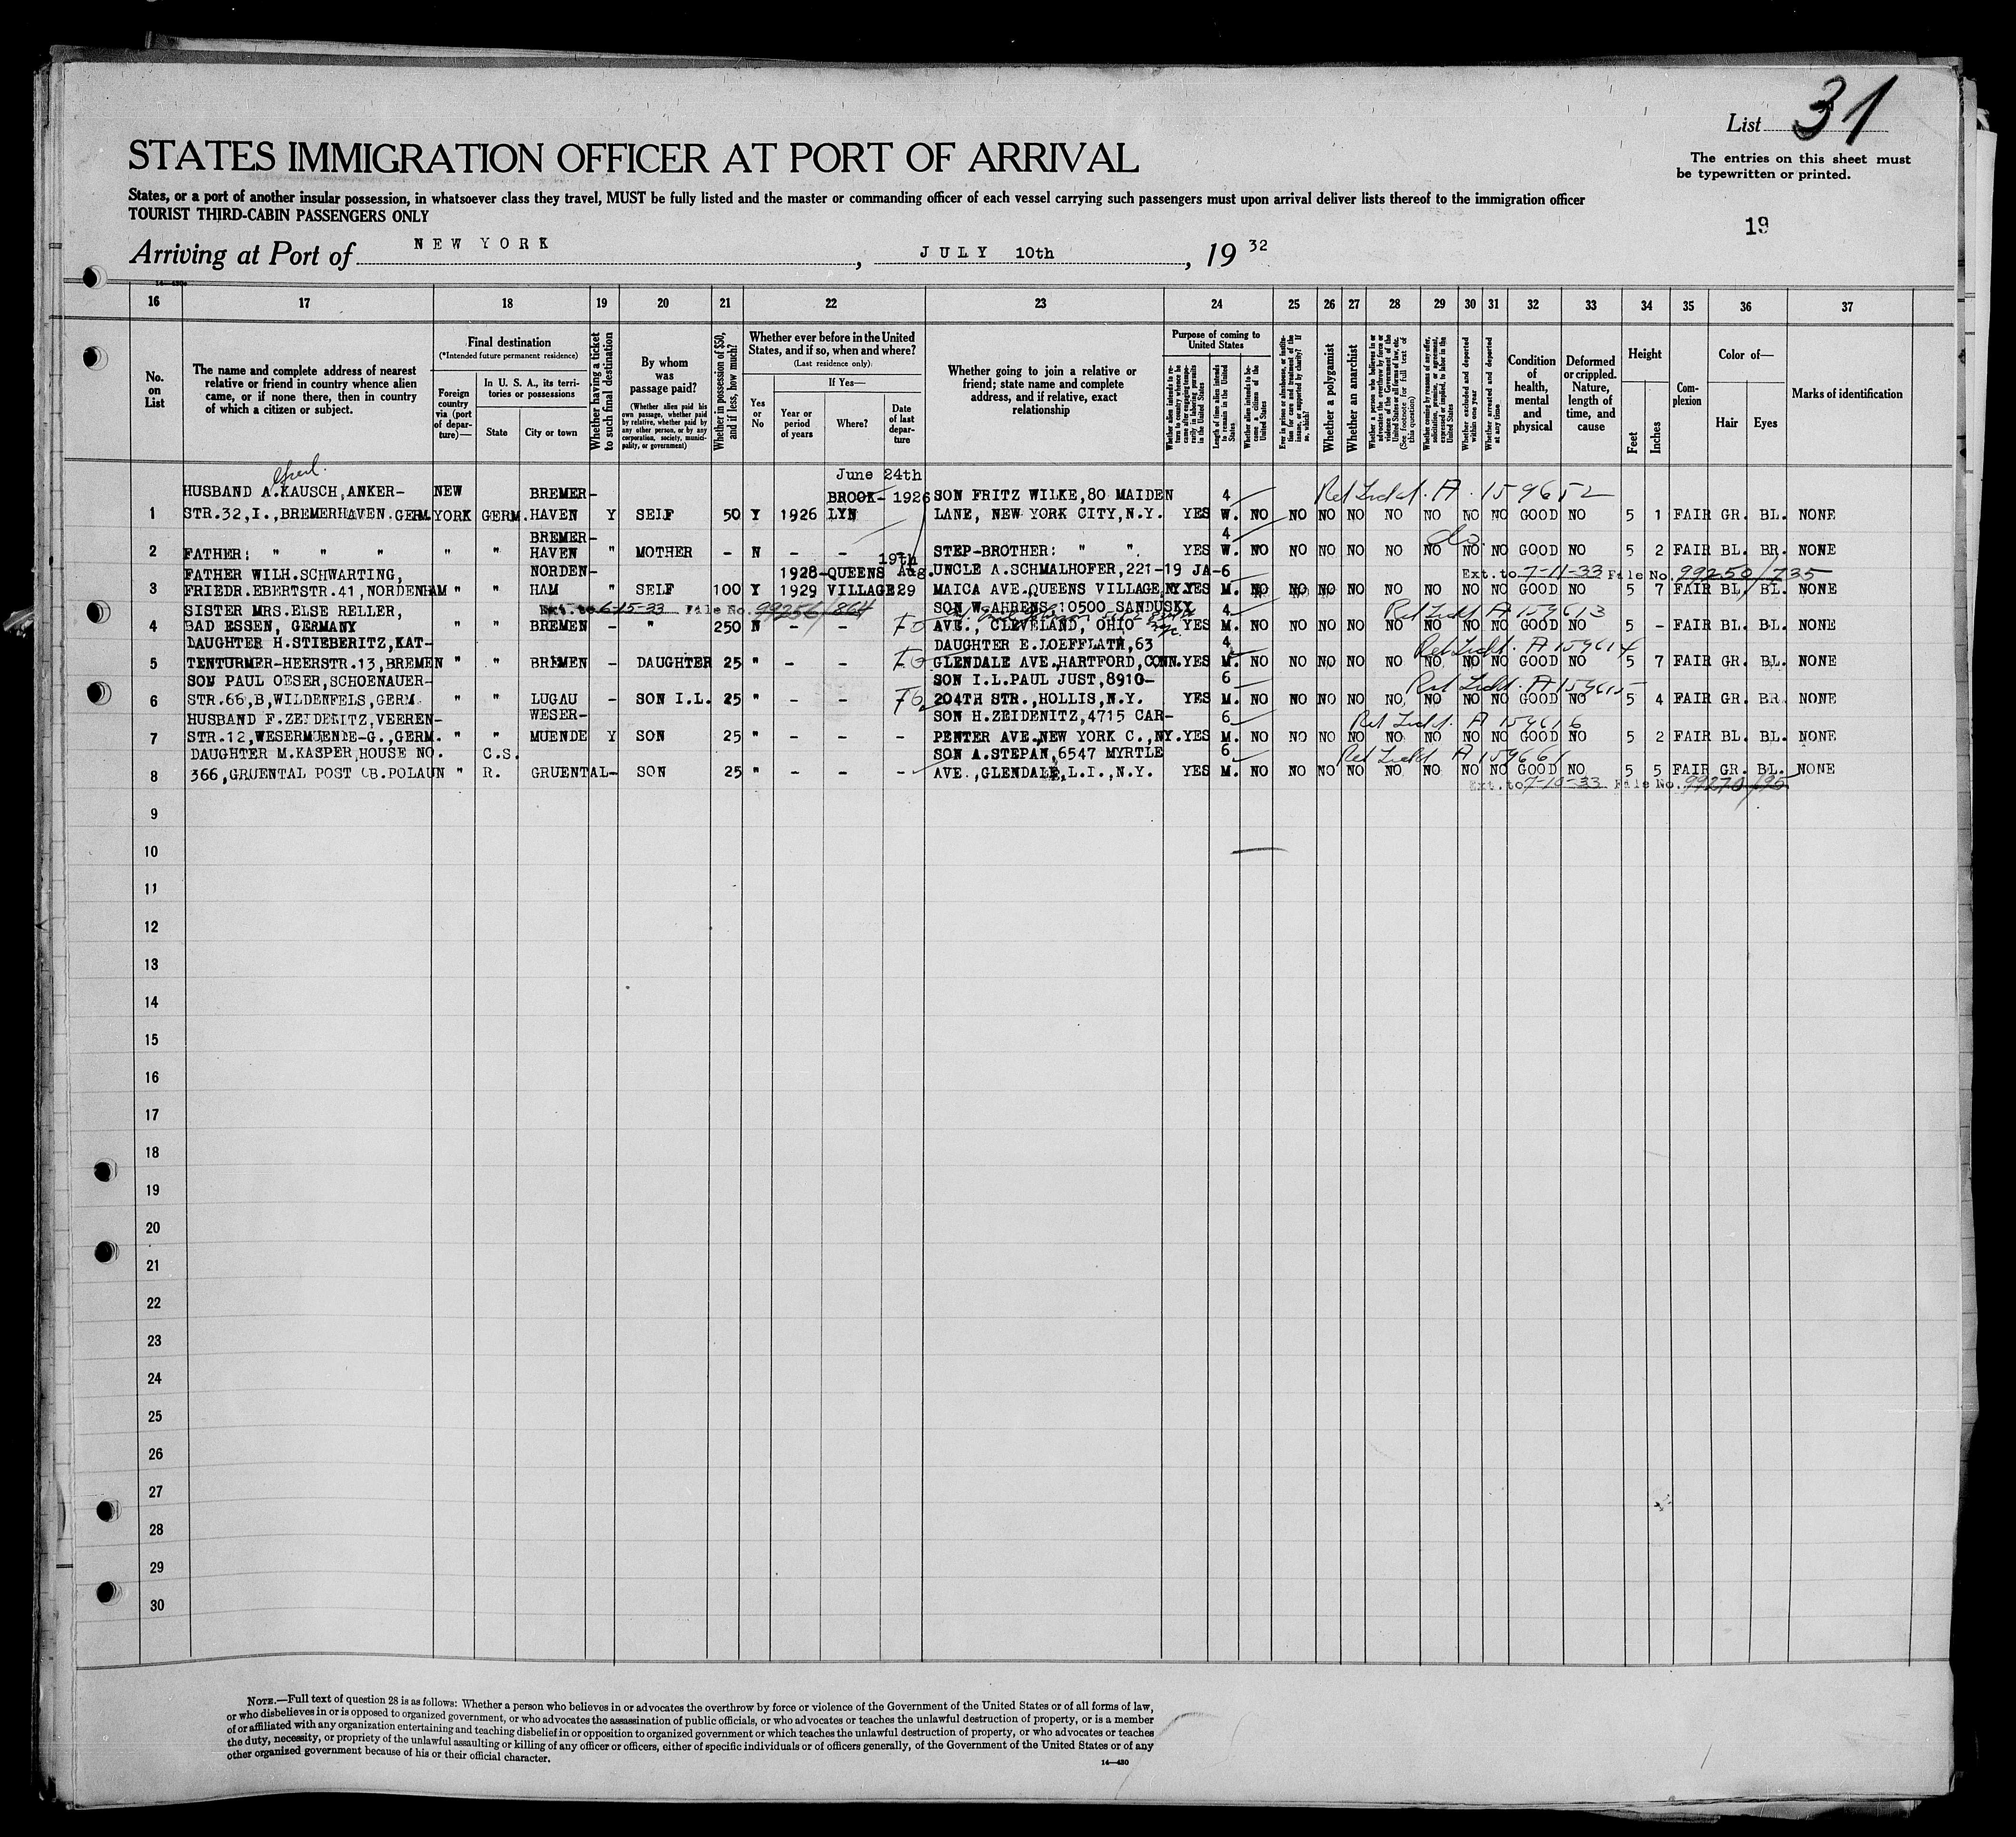 List 31
The entries on this sheet must
be typewritten or printed.
STATES IMMIGRATION OFFICER AT PORT OF ARRIVAL
States, or a port of another insular possession, in whatsoever class they travel, MUST be fully listed and the master or commanding officer of each vessel carrying such passengers must upon arrival deliver lists thereof to the immigration officer
TOURIST THIRD-CABIN PASSENGERS ONLY
19
Arriving at Port of NEW YORK, JULY 10th, 19 32
14—430
16 17 18 19 20 21 22 23 24 25 26 27 28 29 30 31 32 33 34 35 36 37
No. on List
The name and complete address of nearest relative or friend in country whence alien came, or if none there, then in country of which a citizen or subject.
Final destination
(*Intended future permanent residence)
Foreign country via (port of departure)—
In U. S. A., its territories or possessions
State
City or town
Whether having a ticket to such final destination
By whom was passage paid?
(Whether alien paid his own passage, whether paid by relative, whether paid by any other person, or by any corporation, society, municipality, or government)
Whether in possession of $50, and if less, how much?
Whether ever before in the United States, and if so, when and where?
(Last residence only)
Yes or No
If Yes—
Year or period of years
Where?
Date of last departure
Whether going to join a relative or friend; state name and complete address, and if relative, exact relationship
Purpose of coming to United States
Whether alien intends to return to country whence he came after engaging temporarily in laboring pursuits in the United States
Length of time alien intends to remain in the United States
Whether alien intends to become a citizen of the United States
Ever in prison or almshouse, or institution for care and treatment of the insane, or supported by charity? If so, which?
Whether a polygamist
Whether an anarchist
Whether a person who believes in or advocates the overthrow by force or violence of the Government of the United States or all forms of law, etc. (See footnote for full text of this question)
Whether coming by reason of any offer, solicitation, promise, or agreement, expressed or implied, to labor in the United States
Whether excluded and deported within one year
Whether arrested and deported at any time
Condition of health, mental and physical
Deformed or crippled. Nature, length of time, and cause
Height
Feet
Inches
Complexion
Color of—
Hair
Eyes
Marks of identification
June 24th
HUSBAND A.KAUSCH,ANKER- NEW BREMER- BROOK- 1926 SON FRITZ WILKE,80 MAIDEN 4 A.159652
1 STR.32,I.,BREMERHAVEN.GERM. YORK GERM. HAVEN Y SELF 50 Y 1926 LYN LANE, NEW YORK CITY,N.Y. YES W. NO NO NO NO NO NO NO NO GOOD NO 5 1 FAIR GR. BL. NONE
BREMER- 4 do.
2 FATHER: " " " " " HAVEN " MOTHER - N - - - STEP-BROTHER: " " YES W. NO NO NO NO NO NO NO NO GOOD NO 5 2 FAIR BL. BR. NONE
19th
FATHER WILH.SCHWARTING, NORDEN- 1928- QUEENS Aug. UNCLE A.SCHMALHOFER,221-19 JA- 6 Ext. to 7-11-33 File No. 99250/735
3 FRIEDR.EBERTSTR.41,NORDENHAM " " HAM " SELF 100 Y 1929 VILLAGE 29 MAICA AVE.QUEENS VILLAGE,N.Y. YES M. NO NO NO NO NO NO NO NO GOOD NO 5 7 FAIR BL. BL. NONE
SISTER MRS.ELSE RELLER, Ext. to 6-15-33 File No. 99256/864 SON W.AHRENS,10500 SANDUSKY 4 A 159613
4 BAD ESSEN, GERMANY " " BREMEN - " 250 N - - - AVE., CLEVELAND, OHIO YES M. NO NO NO NO NO NO NO NO GOOD NO 5 - FAIR BL. BL. NONE
DAUGHTER H.STIEBERITZ,KAT- DAUGHTER E.LOEFFLATH,63 4 A 159614
5 TENTURMER-HEERSTR.13,BREMEN " " BREMEN - DAUGHTER 25 " - - - GLENDALE AVE.,HARTFORD,CONN. YES M. NO NO NO NO NO NO NO NO GOOD NO 5 7 FAIR GR. BL. NONE
SON PAUL OESER,SCHOENAUER- SON I.L.PAUL JUST,8910- 6 A 159615
6 STR.66,B,WILDENFELS,GERM. " " LUGAU - SON I.L. 25 " - - 204TH STR.,HOLLIS,N.Y. YES M. NO NO NO NO NO NO NO NO GOOD NO 5 4 FAIR GR. BR. NONE
HUSBAND F.ZEIDENITZ,VEEREN- WESER- SON H.ZEIDENITZ,4715 CAR- 6 A 159616
7 STR.12,WESERMUENDE-G.,GERM. " " MUENDE Y SON 25 " - - - PENTER AVE.,NEW YORK C.,NY. YES M. NO NO NO NO NO NO NO NO GOOD NO 5 2 FAIR BL. BL. NONE
DAUGHTER M.KASPER,HOUSE NO. C.S. SON A.STEPAN,6547 MYRTLE 6 A 159661
8 366,GRUENTAL POST OB.POLAUN " R. GRUENTAL- SON 25 " - - - AVE.,GLENDALE,L.I.,N.Y. YES M. NO NO NO NO NO NO NO NO GOOD NO 5 5 FAIR GR. BL. NONE
Ext. to 7-10-33 File No. 99270/195
9
10
11
12
13
14
15
16
17
18
19
20
21
22
23
24
25
26
27
28
29
30
NOTE.—Full text of question 28 is as follows: Whether a person who believes in or advocates the overthrow by force or violence of the Government of the United States or of all forms of law,
or who disbelieves in or is opposed to organized government, or who advocates the assassination of public officials, or who advocates or teaches the unlawful destruction of property, or is a member
of or affiliated with any organization entertaining and teaching disbelief in or opposition to organized government or which teaches the unlawful destruction of property, or who advocates or teaches
the duty, necessity, or propriety of the unlawful assaulting or killing of any officer or officers, either of specific individuals or of officers generally, of the Government of the United States or of any
other organized government because of his or their official character.
14—430